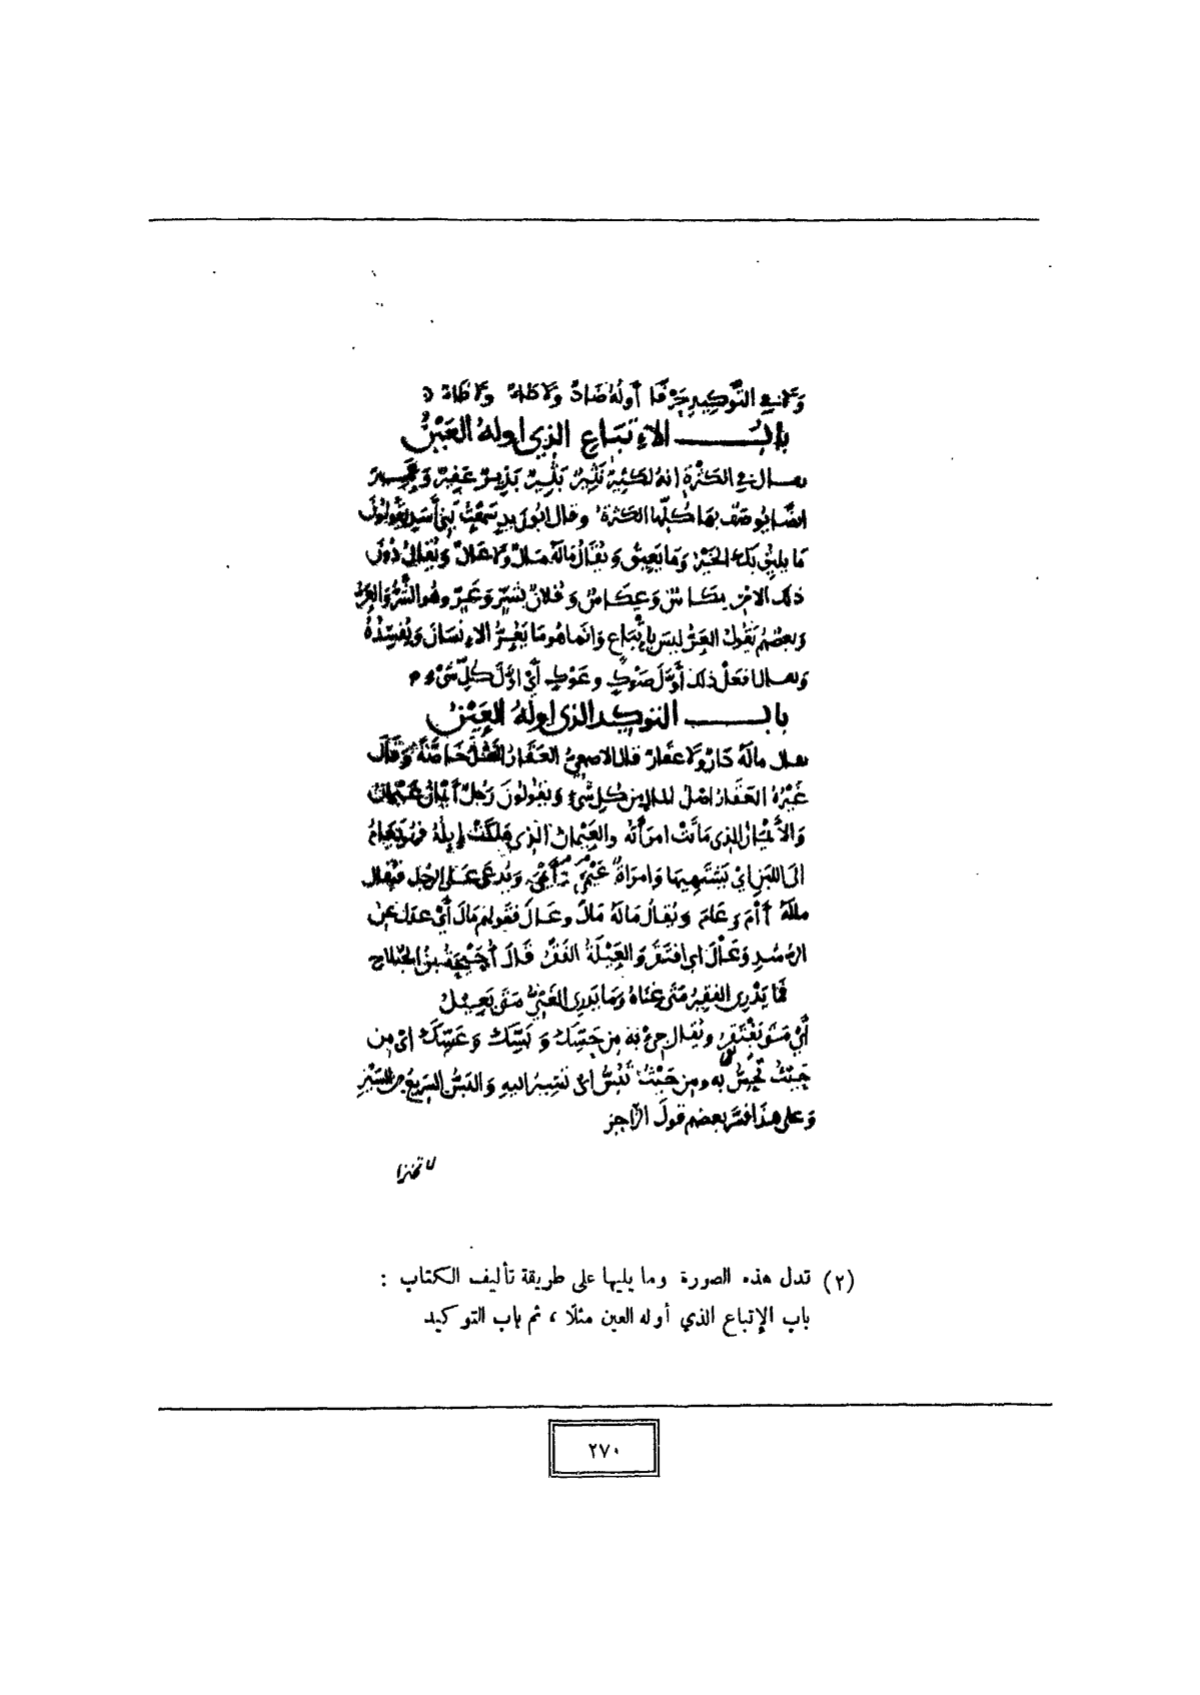 ولا في التوكيد حَرْفًا أولُهُ ضَادٌ وَلَا طَاءٌ وَلَا ظَاءٌ
بابُ الإِتبَاعِ الذي اوله العَيْنُ
يقال في الكثرة انه لكَثِيرٌ نَثِيرٌ بَثِيرٌ بَذِيرٌ عَفِيرٌ
ايضًا يُوصَفُ بهَا كُلِّهَا الكثرةُ وقال ابو زيد سَمِعْتُ بَنِي أَسَدٍ يَقُولُونَ
مَا يَلِيقُ بكَ الخَيْرُ وَمَا يَعِيقُ وَيُقَالُ مَالَهُ مَالٌ وَلَا عَالٌ
ذلك الامر مِكَاسٌ وَعِكَاسٌ وَفُلَانٌ وَعَرٌّ وهُو الشَّرُّ وَالعَرُّ
وَبعضُهُم يَقُولُ العَرُّ لَيسَ بِإِتْبَاعٍ وَانَّما هُو مَا يَعُرُّ الإِنْسَانَ وَيُفْسِدُهُ
وَيقال افعَلْ ذلك أَوَّلَ صَوْكٍ وعَوْكٍ أَيْ اوَّلَ كُلِّ شَيْءٍ
بابُ التوكيد الذي اوله العَيْنُ
يقال مالَهُ دَارٌ وَلَا عقَارٌ قال الاصمعيُّ العَقَارُ النَّخْلُ خَاصَّةً وَقَالَ
غَيْرُهُ العَقَارُ اصْلُ المال مِن كُلِّ شَيْءٍ وَيَقُولُونَ رَجُلٌ أَيْمَانُ عَيْمَانُ
وَالأَيْمَانُ الذي مَاتَتْ امرَأَتُه والعَيْمانُ الذي هَلَكَتْ إِبِلُهُ فَهُو يَعَامُ
الى اللَّبَنِ ايْ يَشْتَهِيهَا وَامرَاةٌ عَيْمَى أَيْمَى وَيُدعَى عَلى الرجُل فيُقَال
مالَهُ آمَ وَعَامَ وَيُقَالُ مَالَهُ مَالَ وعَالَ فَقَولهم مَالَ أَيْ عدَل عن
الرُّشدِ وَعَالَ اي افتقَرَ وَالعَيْلَةُ الفَقْرُ قَالَ أُحَيْحَةُ بنُ الجُلاح
فَمَا يَدْرِي الفقِيرُ مَتَى غِنَاهُ وَمَا يَدرِي الغَنِيُّ مَتَى يَعِيلُ
أَيْ مَتَى يَفْتَقِر ويُقال جِئْ بهِ مِن حَسِّكَ وَبَسِّكَ وَعَسِّكَ ايْ مِن
حَيْثُ تُحِسُّ بِه ومِن حَيْثُ تَبُسُّ اي تَسِيرُ اليهِ وَالبَسُّ السَّيْرِ
وَعلى هذا فسَّر بعضهم قولَ الرَّاجز
لا تخبزا
(٢) تدل هذه الصورة وما يليها على طريقة تأليف الكتاب :
باب الإتباع الذي أوله العين مثلًا ، ثم باب التوكيد
٢٧٠